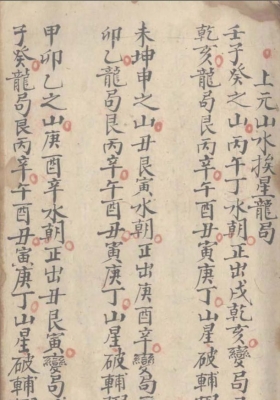 上元山水挨星龍局
壬子癸之山丙午丁水朝正出戌乾亥變局
乾亥龍局艮丙辛午酉丑寅庚丁山星破輔
未坤申之山丑艮寅水朝正出庚酉辛變局
卯乙龍局艮丙辛午酉丑寅庚丁山星破輔
甲卯乙之山庚酉辛水朝正出丑艮寅變局
子癸龍局艮丙辛午酉丑寅庚丁山星破輔